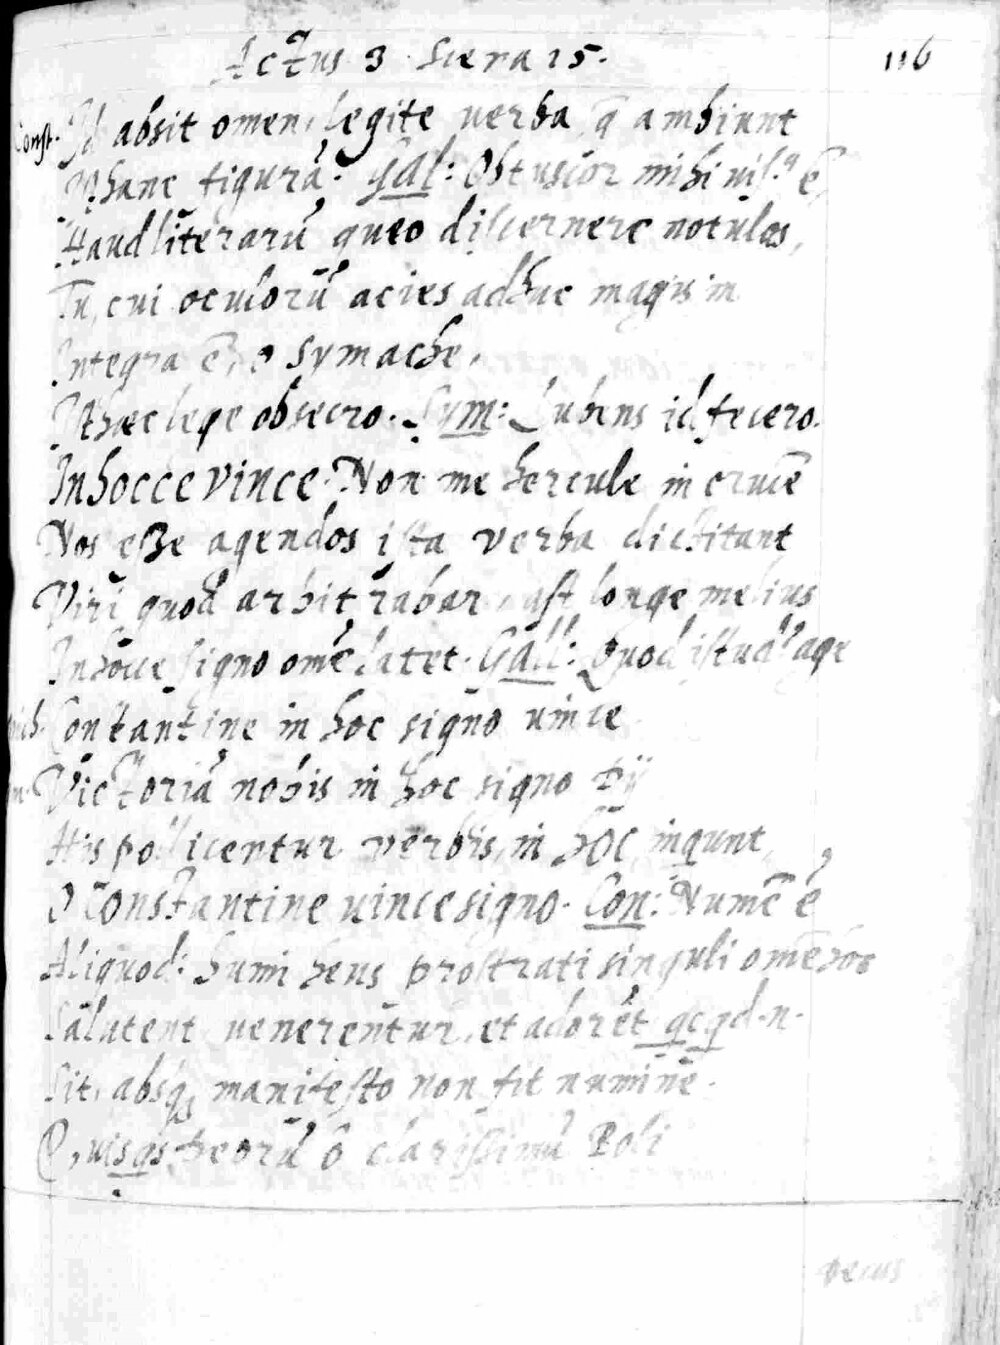 Actus 3 Scena 15. 116
Const. Id absit omen, legite verba q̄ ambiunt
hanc figurā. Gal: Obtusior mihi vis.ª ē,
Haud literarū queo discernere notulas,
Tu, cui oculorū acies adhuc magis in
Integra ē, o Symache,
hæc lege obsecro. Sym: Lubens id fecero.
In hocce vince. Non me hercule in crucē
Nos eße agendos ista verba dictitant
Viri quod arbitrabar, ast longe melius
In hocce signo omē latet. Gall: Quod istud? age
Constantine in hoc signo vince
Victoriā nobis in hoc signo Dij
His pollicentur verbis, in hoc, inqunt,
O Constantine vince signo. Con: Numē ē
Aliquod: humi heus prostrati singuli omē hoc
Salutent venerentur, et adorēt qcqd.n.
Sit, absq; manifesto non fit numine.
Quisqs deorū ô clarissimū Poli
decus